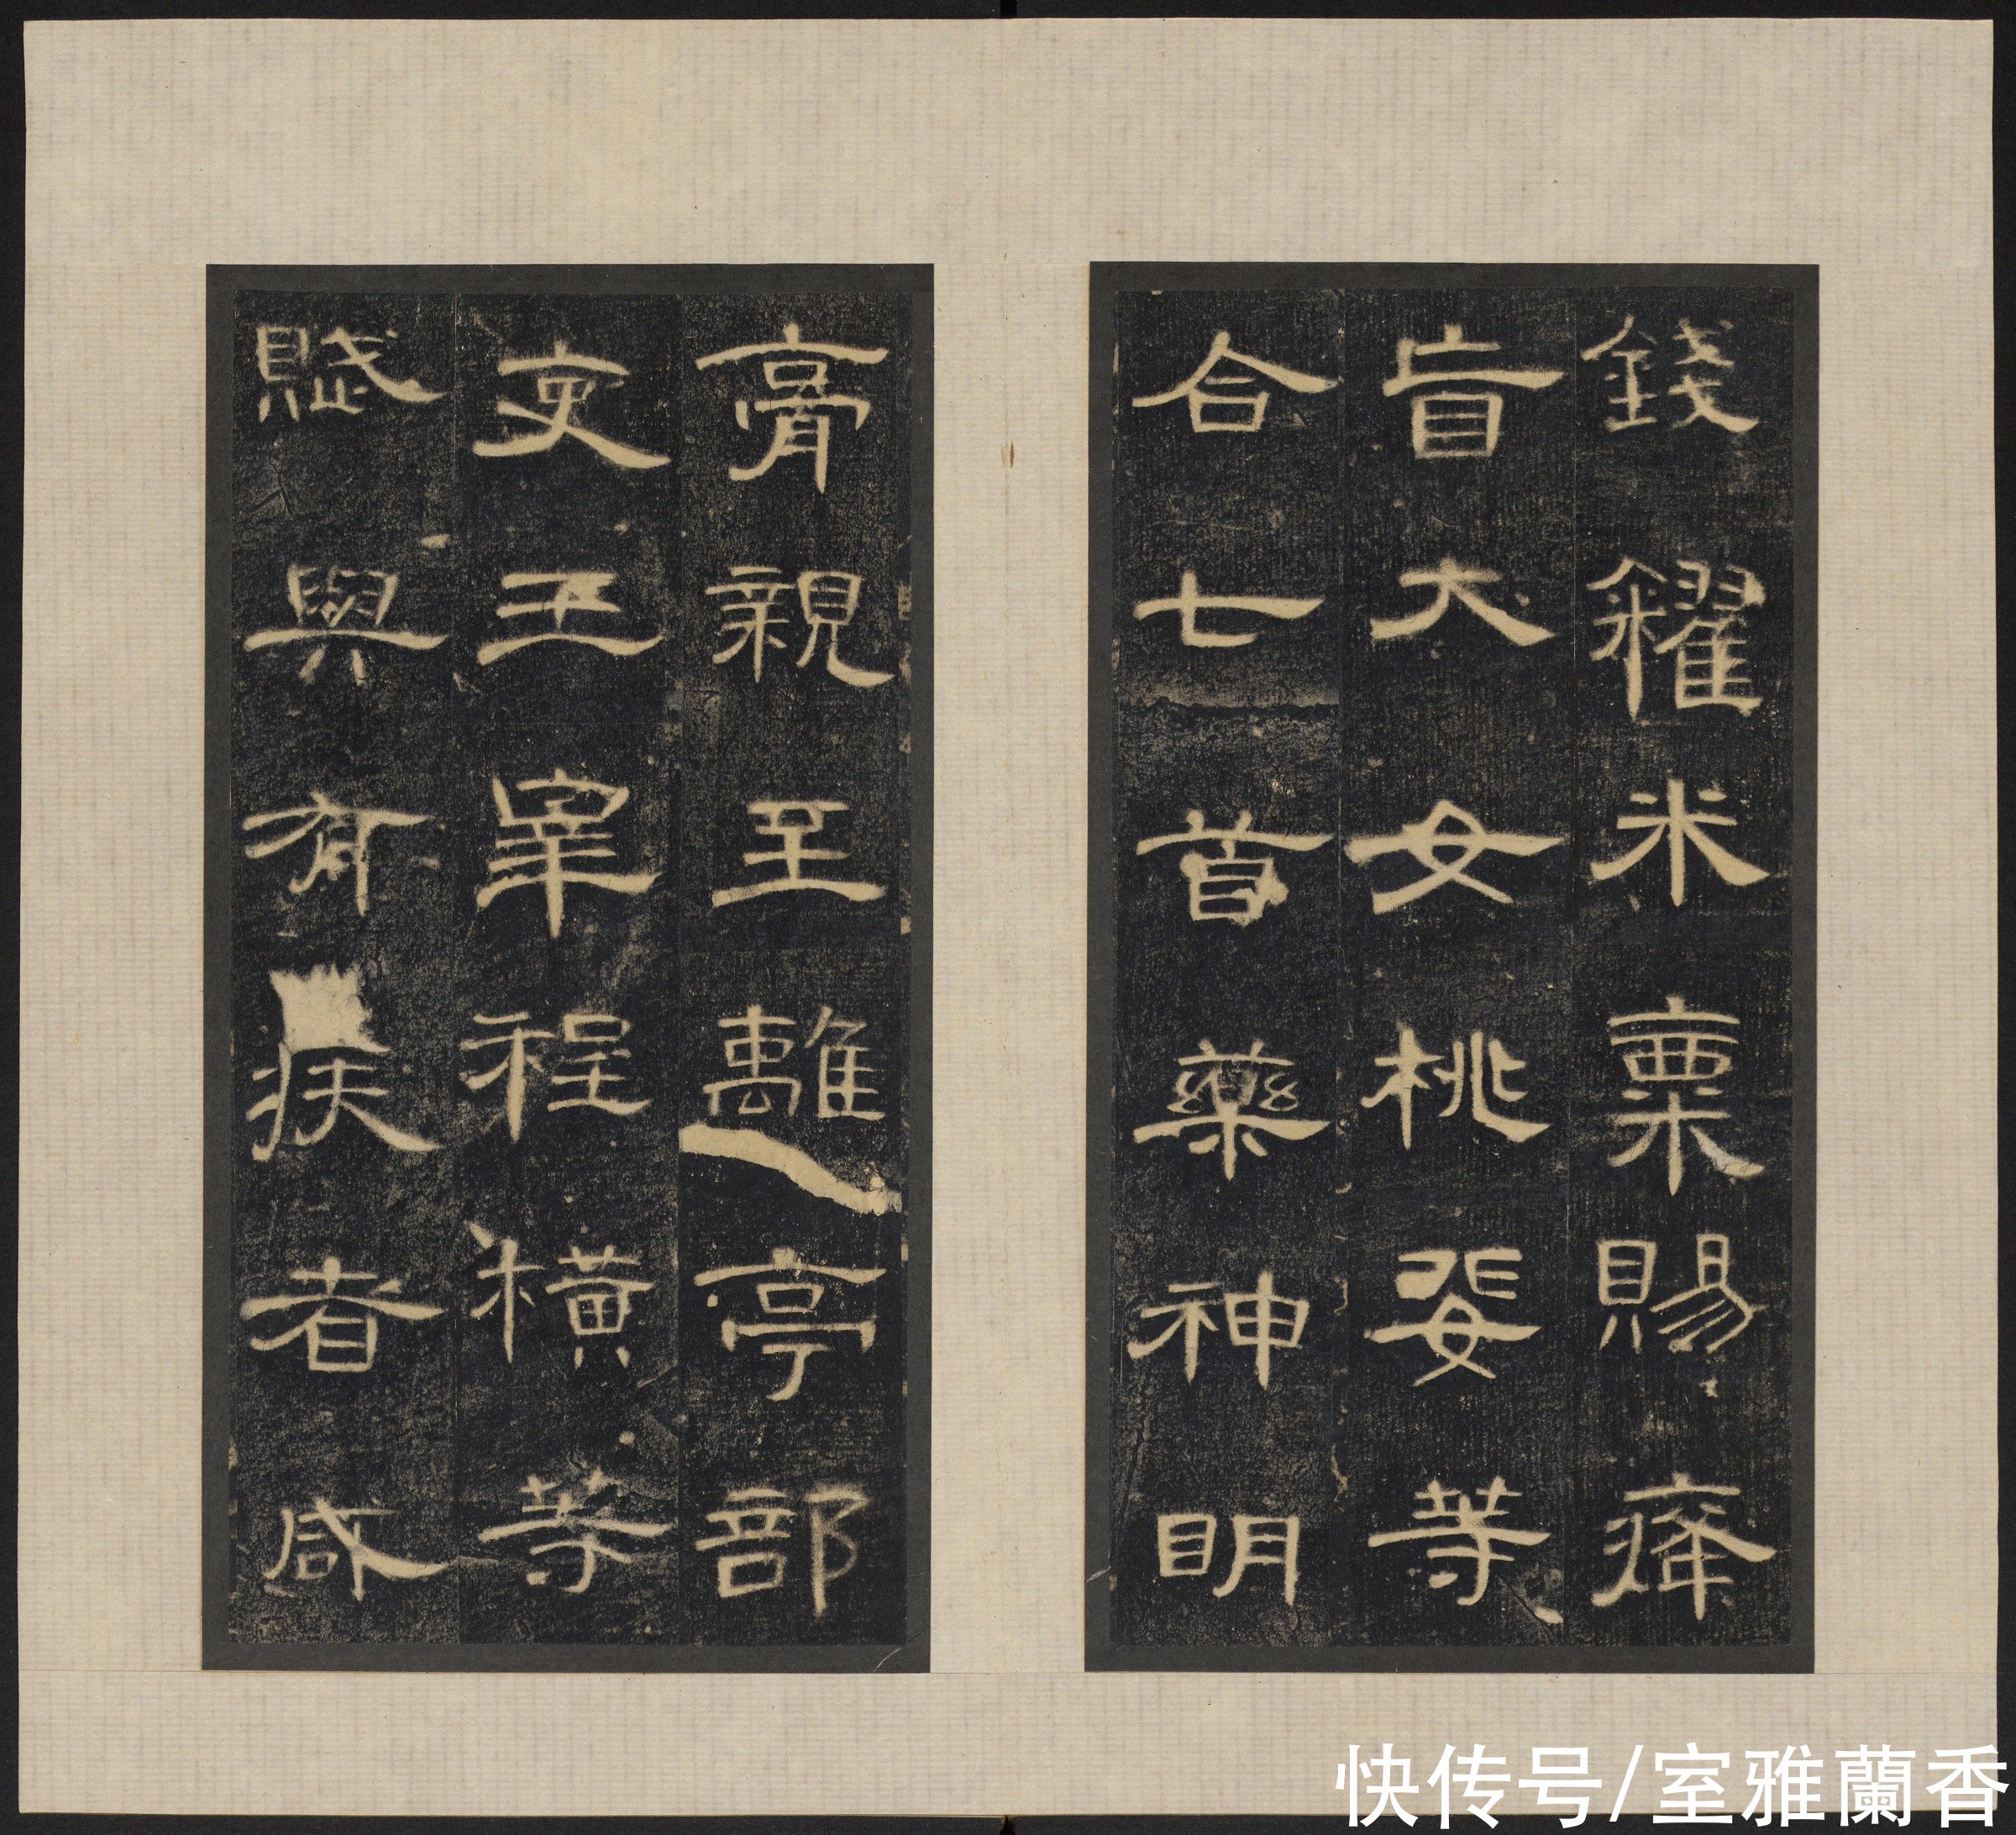 錢糴米粟賜癃
盲大女桃婓等
合七首藥神明
膏親至離亭部
吏王皐程横等
賦與有疾者咸
快传号/室雅蘭香